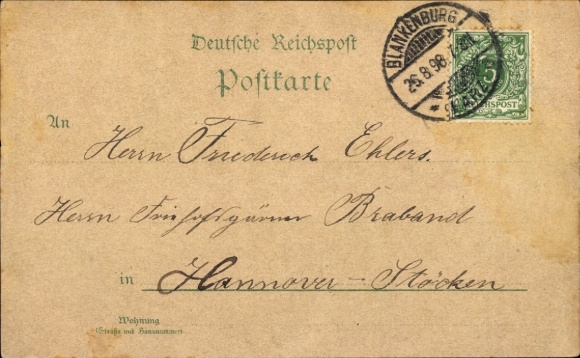 Deutsche Reichspost
Postkarte
BLANKENBURG
26.8.98.
* (HARZ) *
5
REICHSPOST
An
Herrn Friederich Ehlers.
Herrn Friehofsgärtner Braband
in Hannover - Stöcken
Wohnung
(Straße und Hausnummer)